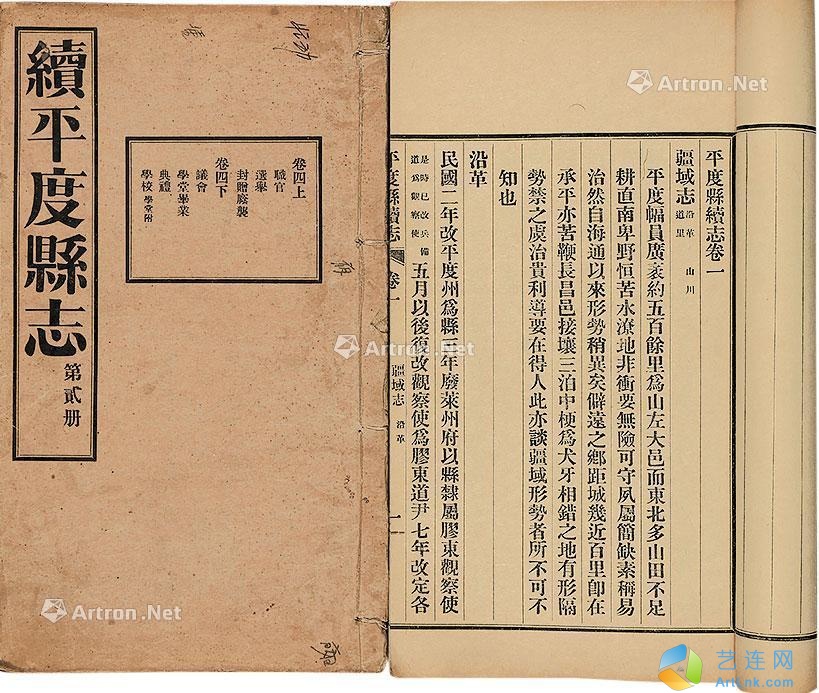 續平度縣志
第貳册
卷四上
職官
選舉
封贈廕襲
卷四下
議會
學堂畢業
典禮
學校 學堂附
平度縣續志卷一
疆域志 沿革 山川 道里
平度幅員廣袤約五百餘里爲山左大邑而東北多山田不足
耕直南卑野恒苦水潦地非衝要無險可守夙屬簡缺素稱易
治然自海通以來形勢稍異矣僻遠之鄉距城幾近百里卽在
承平亦苦鞭長昌邑接壤三泊中梗爲犬牙相錯之地有形隔
勢禁之虞治貴利導要在得人此亦談疆域形勢者所不可不
知也
沿革
民國二年改平度州爲縣三年廢萊州府以縣隸屬膠東觀察使
是時已改兵備道爲觀察使 五月以後復改觀察使爲膠東道尹七年改定各
平度縣續志 卷一 疆域志 沿革 一
Artron.Net
Artron.Net
Artron.Net
Artron.Net
艺连网
ArtLink.com